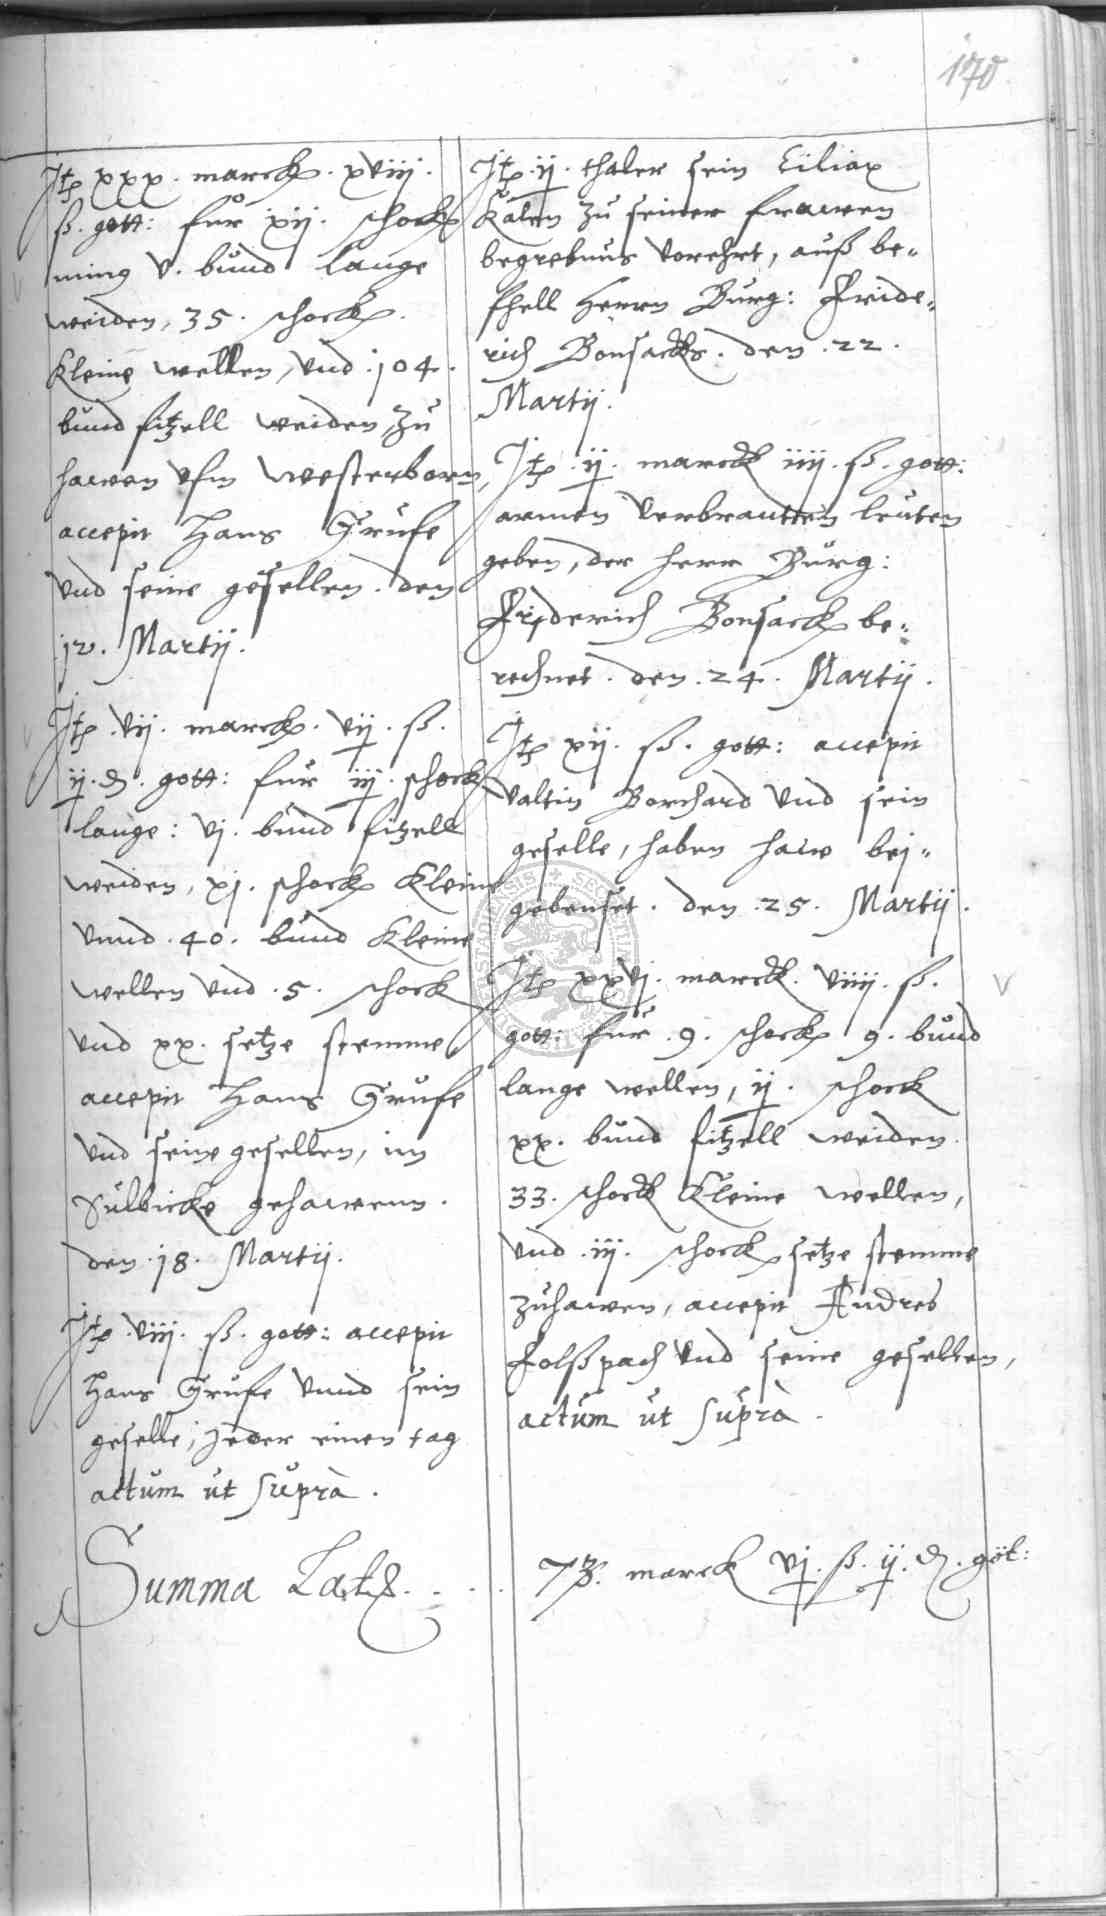 170
Itē xxx. marck. xviij.
ß. gott: fur xij. schock
ming v. bund lange
weiden, 35. schock
Kleine wellen, vnd .104.
bund fitzell weiden, zu
hawen vfm Westerborn,
accepit Hans Grufe
vnd seine gesellen. den
12. Martij.
Itē .vij. marck. vij. ß.
ij. d. gott: fur iij. schock
lange: vj. bund fitzell
weiden, xj. schock Kleine
vnnd .40. bund Kleine
wellen vnd .5. schock
vnd xx. setze stemme
accepit Hans Grufe
vnd seine gesellen, im
Sulbicke gehawenn.
den .18. Martij.
Itē .viij. ß. gott: accepit
Hans Grufe vnnd sein
geselle, jeder einen tag
actum ut supra.
Itē .ij. thaler sein Ciliax
Kalen zu seiner frawen
begrebnus vorehrt, auß be„
fhell Herrn Burg: Fride„
rich Bonsacks. den .22.
Martij.
Itē .ij. marck iiij. ß. gott:
armen verbranttin leuten
geben, der herr Burg:
Friderich Bonsack be„
rechnet. den .24. Martij.
Itē xij. ß. gott: accepit
Valtin Borchard vnd sein
geselle, haben haw bej„
gebenset. den .25. Martij.
Itē xxvj. marck. viiij. ß.
gott: fur .9. schock 9. bund
lange wellen, ij. schock
xx. bund fitzell weiden.
33. schock Kleine wellen,
vnd .iij. schock setze stemme
zuhawen, accepit Andres
Folßpach vnd seine gesellen,
actum ut supra.
Summa Lateris . . . . 73. marck vj. ß. ij. d. göt: